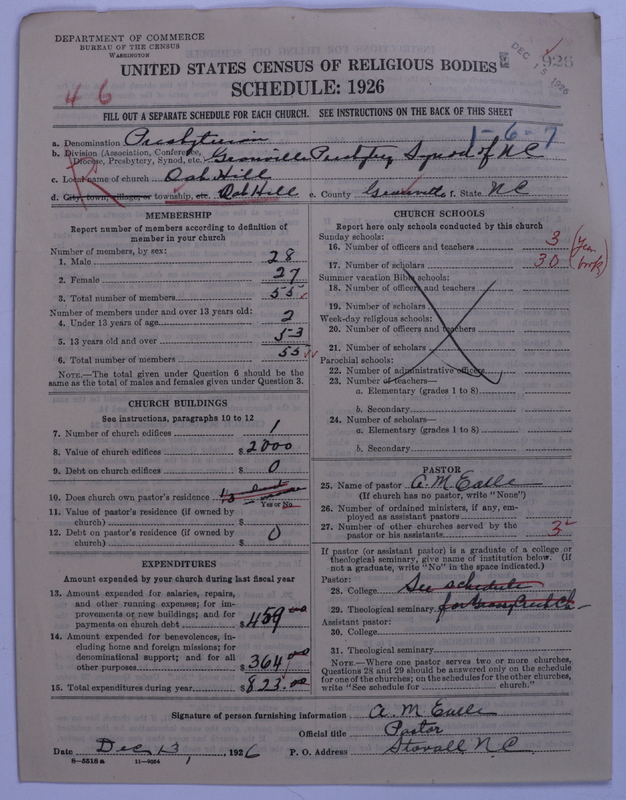 DEPARTMENT OF COMMERCE
BUREAU OF THE CENSUS
WASHINGTON
DEC 15 1926
926
UNITED STATES CENSUS OF RELIGIOUS BODIES
SCHEDULE: 1926
4 6
FILL OUT A SEPARATE SCHEDULE FOR EACH CHURCH. SEE INSTRUCTIONS ON THE BACK OF THIS SHEET
a. Denomination Presbyterian
1-6-7
b. Division (Association, Conference, Diocese, Presbytery, Synod, etc. Granville Presbytery Synod of NC
c. Local name of church Oak Hill
d. City, town, village, or township, etc. Oak Hill e. County Granville f. State NC
MEMBERSHIP
Report number of members according to definition of member in your church
Number of members, by sex:
1. Male 28
2. Female 27
3. Total number of members 55
Number of members under and over 13 years old:
4. Under 13 years of age 2
5. 13 years old and over 53
6. Total number of members 55
NOTE.—The total given under Question 6 should be the same as the total of males and females given under Question 3.
CHURCH BUILDINGS
See instructions, paragraphs 10 to 12
7. Number of church edifices 1
8. Value of church edifices $ 2000
9. Debt on church edifices $ 0
10. Does church own pastor's residence
Yes or No
11. Value of pastor's residence (if owned by church) $
12. Debt on pastor's residence (if owned by church) $ 0
EXPENDITURES
Amount expended by your church during last fiscal year
13. Amount expended for salaries, repairs, and other running expenses; for improvements or new buildings; and for payments on church debt $ 459.00
14. Amount expended for benevolences, including home and foreign missions; for denominational support; and for all other purposes $ 364.00
15. Total expenditures during year $ 823.00
CHURCH SCHOOLS
Report here only schools conducted by this church
Sunday schools:
16. Number of officers and teachers 3
17. Number of scholars 30
(Year book)
Summer vacation Bible schools:
18. Number of officers and teachers
19. Number of scholars
Week-day religious schools:
20. Number of officers and teachers
21. Number of scholars
Parochial schools:
22. Number of administrative officers
23. Number of teachers—
a. Elementary (grades 1 to 8)
b. Secondary
24. Number of scholars—
a. Elementary (grades 1 to 8)
b. Secondary
PASTOR
25. Name of pastor A. M. Earle
(If church has no pastor, write "None")
26. Number of ordained ministers, if any, employed as assistant pastors
27. Number of other churches served by the pastor or his assistants 3
If pastor (or assistant pastor) is a graduate of a college or theological seminary, give name of institution below. (If not a graduate, write "No" in the space indicated.)
Pastor:
28. College See schedule
29. Theological seminary for Grassy Creek Ch.
Assistant pastor:
30. College
31. Theological seminary
NOTE.—Where one pastor serves two or more churches, Questions 28 and 29 should be answered only on the schedule for one of the churches; on the schedules for the other churches, write "See schedule for church."
Signature of person furnishing information A. M. Earle
Official title Pastor
Date Dec 13, 1926 P. O. Address Stovall N.C.
8-5518a 11-9064